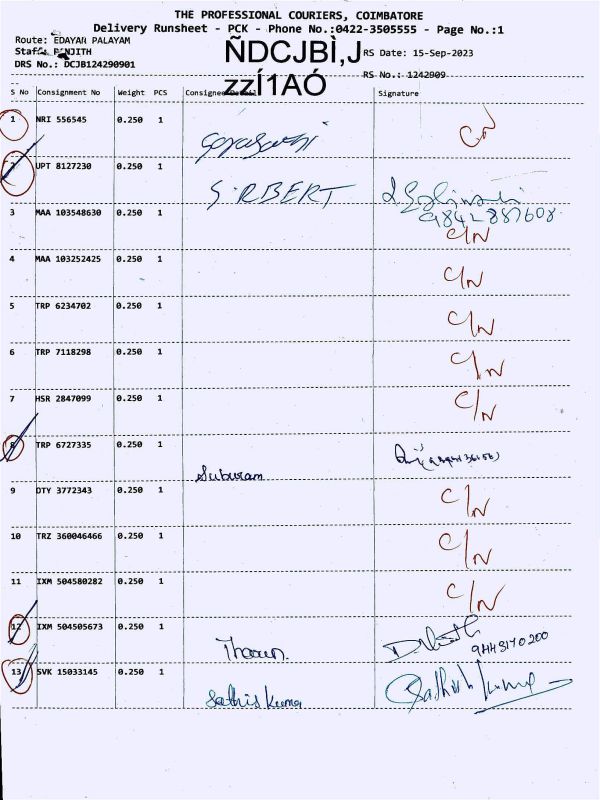 THE PROFESSIONAL COURIERS, COIMBATORE
Delivery Runsheet - PCK - Phone No.:0422-3505555 - Page No.:1
Route: EDAYAR PALAYAM
ÑDCJBÌ,J
RS Date: 15-Sep-2023
DRS No.: DCJB124290901
zzÍ1AÓ
RS No.: 1242909
S No Consignment No Weight PCS Consignee Detail Signature
1 NRI 556545 0.250 1
2 UPT 8127230 0.250 1 S.RBERT
9842887608
3 MAA 103548630 0.250 1 C/N
4 MAA 103252425 0.250 1 C/N
5 TRP 6234702 0.250 1 C/N
6 TRP 7118298 0.250 1 C/N
7 HSR 2847099 0.250 1 C/N
8 TRP 6727335 0.250 1 Suburam
9 DTY 3772343 0.250 1 C/N
10 TRZ 360046466 0.250 1 C/N
11 IXM 504580282 0.250 1 C/N
12 IXM 504505673 0.250 1 Tharun. 9443170200
13 SVK 15033145 0.250 1 Sathis Kuma Sathish Kumar